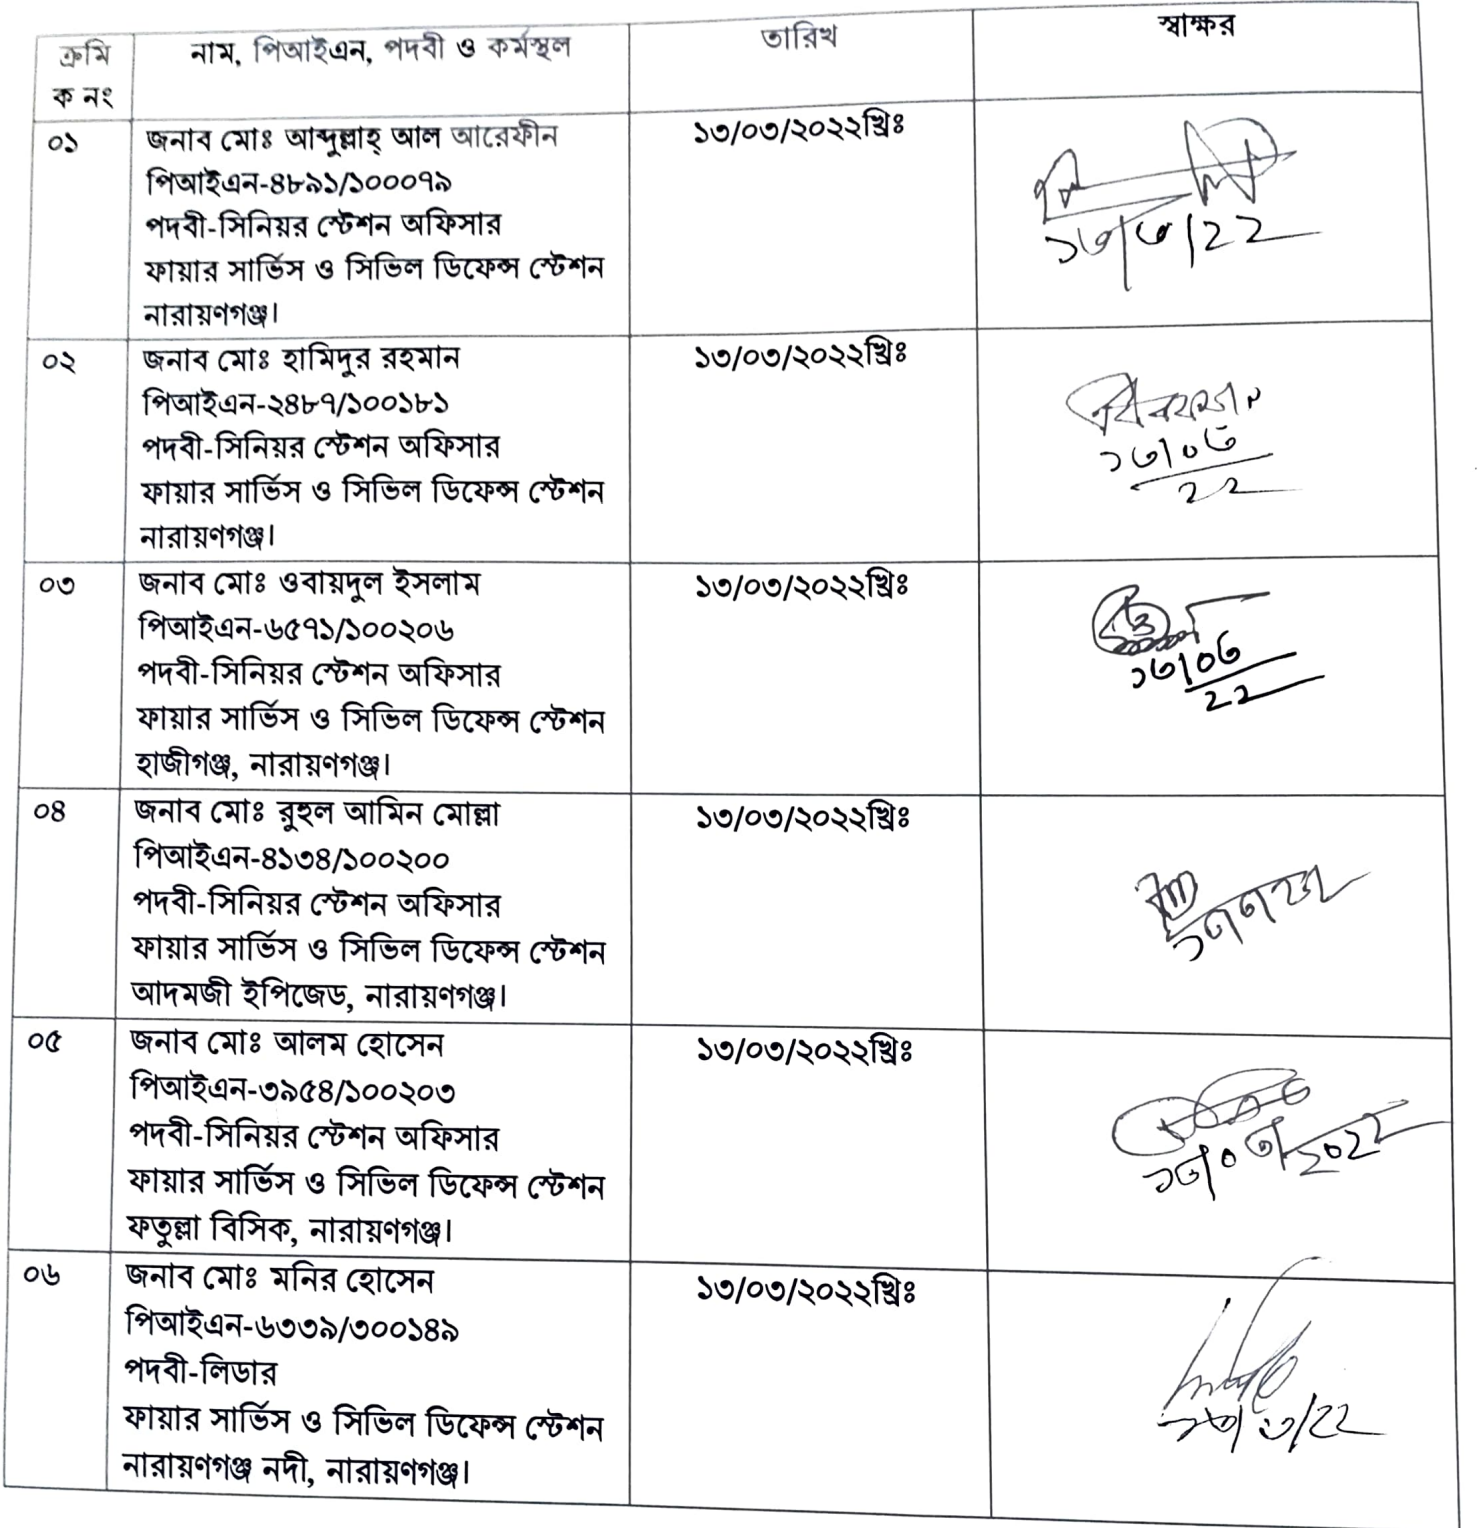 ক্রমি
ক নং
নাম, পিআইএন, পদবী ও কর্মস্থল
তারিখ
স্বাক্ষর
০১
জনাব মোঃ আব্দুল্লাহ্ আল আরেফীন
পিআইএন-৪৮৯১/১০০০৭৯
পদবী-সিনিয়র স্টেশন অফিসার
ফায়ার সার্ভিস ও সিভিল ডিফেন্স স্টেশন
নারায়ণগঞ্জ।
১৩/০৩/২০২২খ্রিঃ
১৩/৩/22
০২
জনাব মোঃ হামিদুর রহমান
পিআইএন-২৪৮৭/১০০১৮১
পদবী-সিনিয়র স্টেশন অফিসার
ফায়ার সার্ভিস ও সিভিল ডিফেন্স স্টেশন
নারায়ণগঞ্জ।
১৩/০৩/২০২২খ্রিঃ
১৩/০৩
22
০৩
জনাব মোঃ ওবায়দুল ইসলাম
পিআইএন-৬৫৭১/১০০২০৬
পদবী-সিনিয়র স্টেশন অফিসার
ফায়ার সার্ভিস ও সিভিল ডিফেন্স স্টেশন
হাজীগঞ্জ, নারায়ণগঞ্জ।
১৩/০৩/২০২২খ্রিঃ
১৩/০৩
22
০৪
জনাব মোঃ রুহুল আমিন মোল্লা
পিআইএন-৪১৩৪/১০০২০০
পদবী-সিনিয়র স্টেশন অফিসার
ফায়ার সার্ভিস ও সিভিল ডিফেন্স স্টেশন
আদমজী ইপিজেড, নারায়ণগঞ্জ।
১৩/০৩/২০২২খ্রিঃ
০৫
জনাব মোঃ আলম হোসেন
পিআইএন-৩৯৫৪/১০০২০৩
পদবী-সিনিয়র স্টেশন অফিসার
ফায়ার সার্ভিস ও সিভিল ডিফেন্স স্টেশন
ফতুল্লা বিসিক, নারায়ণগঞ্জ।
১৩/০৩/২০২২খ্রিঃ
১৩/০৩/2022
০৬
জনাব মোঃ মনির হোসেন
পিআইএন-৬৩৩৯/৩০০১৪৯
পদবী-লিডার
ফায়ার সার্ভিস ও সিভিল ডিফেন্স স্টেশন
নারায়ণগঞ্জ নদী, নারায়ণগঞ্জ।
১৩/০৩/২০২২খ্রিঃ
১৩/৩/22